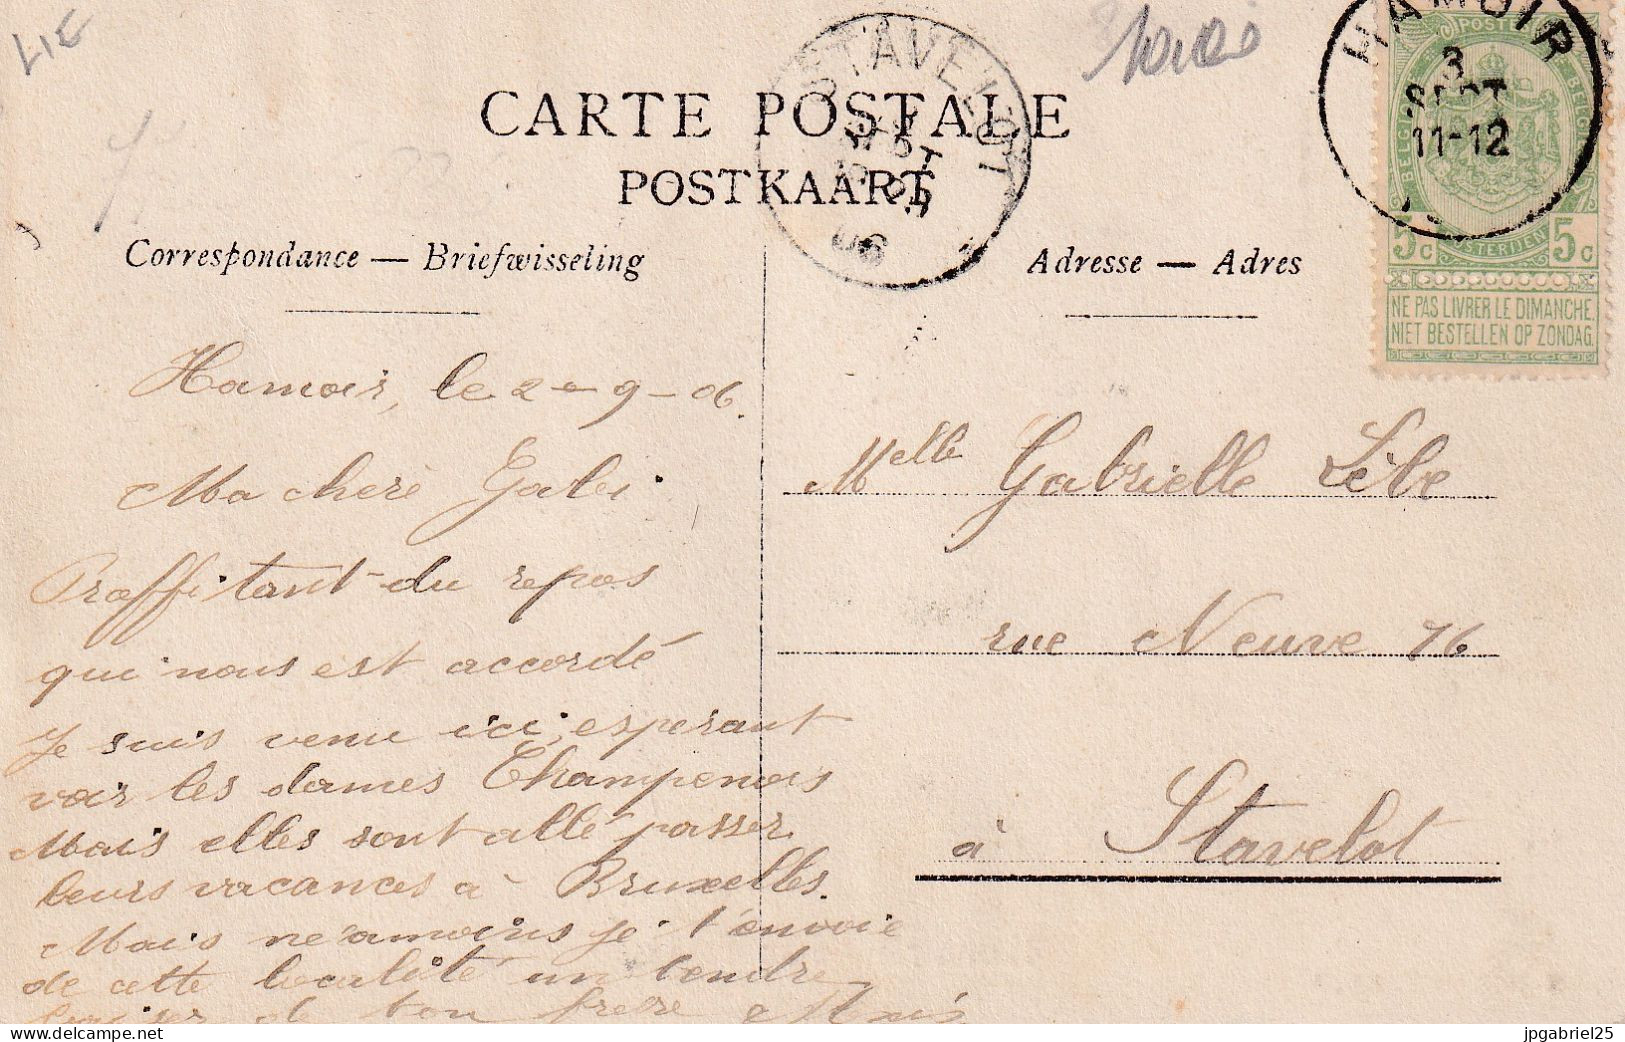 LIE
HAMOIR
3
SEPT
11-12
STAVELOT
06
CARTE POSTALE
POSTKAART
Correspondance — Briefwisseling
Adresse — Adres
POSTE
BELGIQUE
BELGIË
5c 5c
NE PAS LIVRER LE DIMANCHE.
NIET BESTELLEN OP ZONDAG.
Hamoir, le 2-9-06.
Ma chere Gabi
Proffitant du repos
qui nous est accordé
Je suis venu ici, esperant
voir les dames Champenois
Mais elles sont allé passer
leurs vacances à Bruxelles.
Mais ne amoins je t'envoie
de cette localité un tendre
baiser de ton frere
Melle Gabrielle
rue Neuve 76
à Stavelot
www.delcampe.net
jpgabriel25